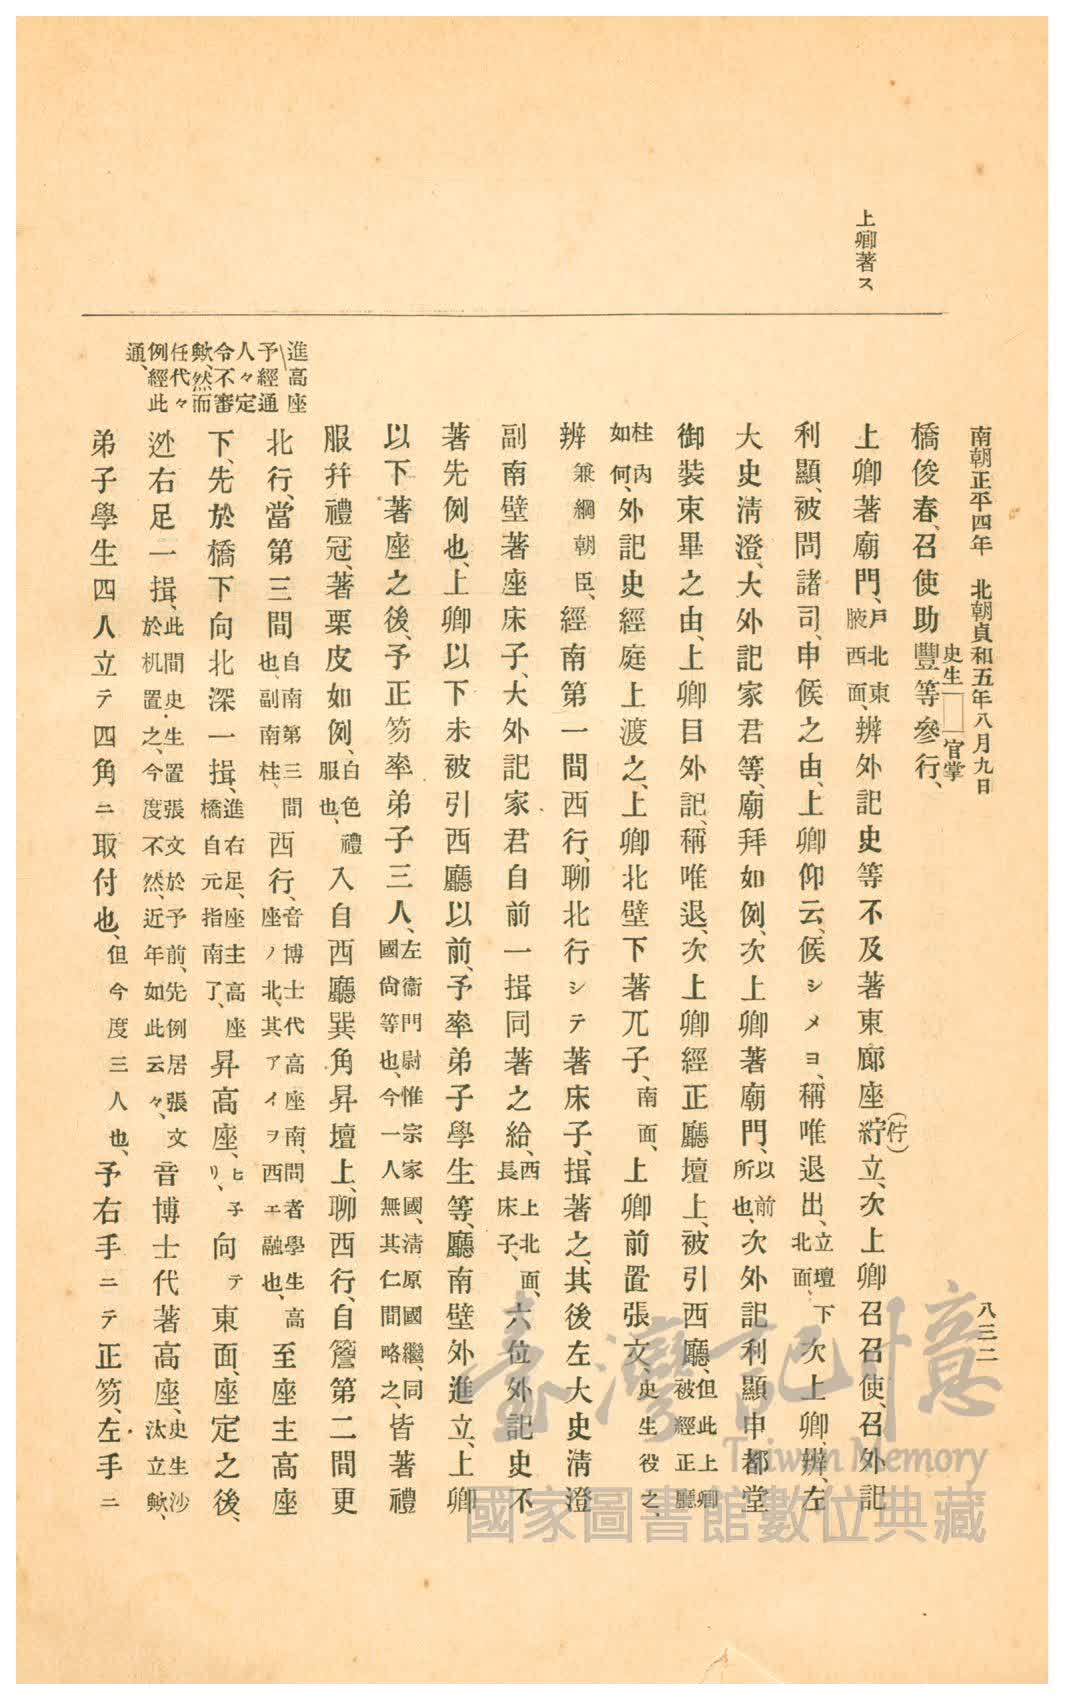 南朝正平四年　北朝貞和五年八月九日
八三二
上卿著ス
橋俊春、召使助豐等參行、史生□官掌
上卿著廟門、戶北東腋西面、辨外記史等不及著東廊座、紵(佇)立、次上卿召召使、召外記
利顯、被問諸司、申候之由、上卿仰云、候シメヨ、稱唯退出、立壇下北面、次上卿、辨、左
大史淸澄、大外記家君等、廟拜如例、次上卿著廟門、以前所也、次外記利顯申都堂
御裝束畢之由、上卿目外記、稱唯退、次上卿經正廳壇上、被引西廳、但此上卿被經正廳
柱內如何、外記史經庭上渡之、上卿北壁下著兀子、南面、上卿前置張文、史生役之、
辨兼綱朝臣、經南第一間西行、聊北行シテ著床子、揖著之、其後左大史淸澄
副南壁著座床子、大外記家君自前一揖同著之給、西上北面、長床子、六位外記史不
著先例也、上卿以下未被引西廳以前、予率弟子學生等、廳南壁外進立、上卿
以下著座之後、予正笏率弟子三人、左衞門尉惟宗家國、淸原國繼、同國尙等也、今一人無其仁間略之、皆著禮
服幷禮冠、著栗皮如例、白色禮服也、入自西廳巽角昇壇上、聊西行、自簷第二間更
北行、當第三間自南第三間也、副南柱、西行、音博士代高座南、問者學生高座ノ北、其アイヲ西エ融也、至座主高座
下、先於橋下向北深一揖、進右足、座主高座橋自元指南了、昇高座、ヒ子リ、向テ東面、座定之後、
迯右足一揖、此間史生置張文於予前、先例居張文於机置之、今度不然、近年如此云々、音博士代著高座、史生沙汰立歟、
弟子學生四人立テ四角ニ取付也、但今度三人也、予右手ニテ正笏、左手ニ
進高座
予經通
人々定
令不審
歟、然而
任代々
例經此
通、
臺灣記憶
Taiwan Memory
國家圖書館數位典藏